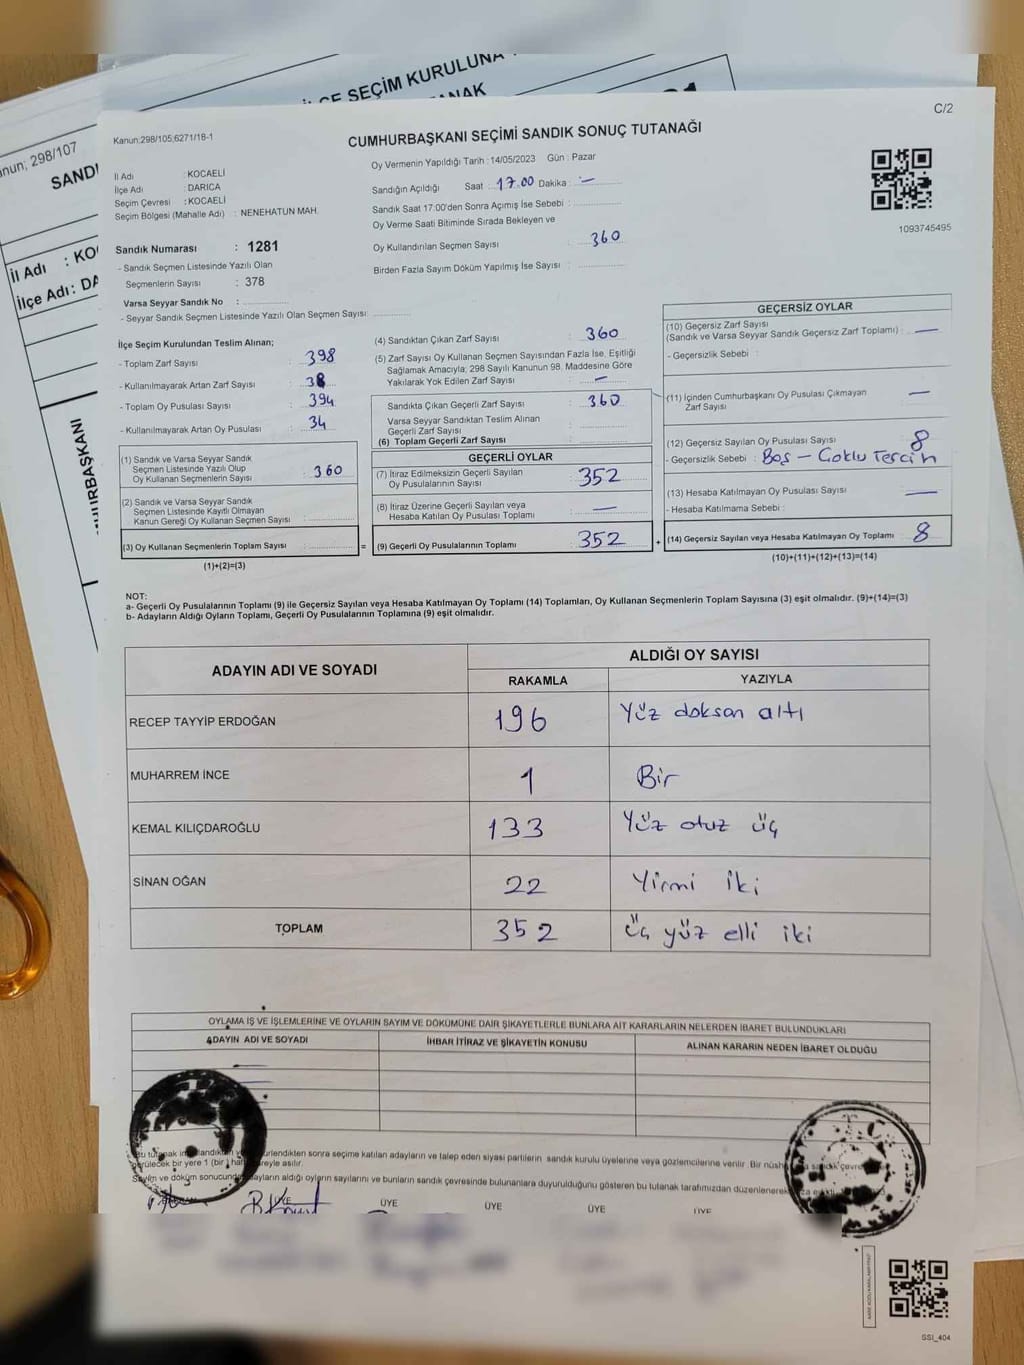 İLÇE SEÇİM KURULUNA
ANAK
298/107
SAND
İl Adı : KO
İlçe Adı: DA
C/2
Kanun:298/105;6271/18-1
CUMHURBAŞKANI SEÇİMİ SANDIK SONUÇ TUTANAĞI
İl Adı : KOCAELİ
İlçe Adı : DARICA
Seçim Çevresi : KOCAELİ
Seçim Bölgesi (Mahalle Adı) : NENEHATUN MAH.
Oy Vermenin Yapıldığı Tarih : 14/05/2023 Gün : Pazar
Sandığın Açıldığı Saat : 17.00 Dakika : —
Sandık Saat 17:00'den Sonra Açımış İse Sebebi :
Oy Verme Saati Bitiminde Sırada Bekleyen ve
Oy Kullandırılan Seçmen Sayısı : 360
Birden Fazla Sayım Döküm Yapılmış İse Sayısı :
1093745495
Sandık Numarası : 1281
- Sandık Seçmen Listesinde Yazılı Olan
Seçmenlerin Sayısı : 378
Varsa Seyyar Sandık No :
- Seyyar Sandık Seçmen Listesinde Yazılı Olan Seçmen Sayısı:
İlçe Seçim Kurulundan Teslim Alınan;
- Toplam Zarf Sayısı : 398
- Kullanılmayarak Artan Zarf Sayısı : 38
- Toplam Oy Pusulası Sayısı : 394
- Kullanılmayarak Artan Oy Pusulası : 34
(1) Sandık ve Varsa Seyyar Sandık
Seçmen Listesinde Yazılı Olup
Oy Kullanan Seçmenlerin Sayısı : 360
(2) Sandık ve Varsa Seyyar Sandık
Seçmen Listesinde Kayıtlı Olmayan
Kanun Gereği Oy Kullanan Seçmen Sayısı :
(3) Oy Kullanan Seçmenlerin Toplam Sayısı : =
(1)+(2)=(3)
(4) Sandıktan Çıkan Zarf Sayısı : 360
(5) Zarf Sayısı Oy Kullanan Seçmen Sayısından Fazla İse, Eşitliği
Sağlamak Amacıyla; 298 Sayılı Kanunun 98. Maddesine Göre
Yakılarak Yok Edilen Zarf Sayısı : —
Sandıkta Çıkan Geçerli Zarf Sayısı : 360
Varsa Seyyar Sandıktan Teslim Alınan
Geçerli Zarf Sayısı :
(6) Toplam Geçerli Zarf Sayısı :
GEÇERLİ OYLAR
(7) İtiraz Edilmeksizin Geçerli Sayılan
Oy Pusulalarının Sayısı : 352
(8) İtiraz Üzerine Geçerli Sayılan veya
Hesaba Katılan Oy Pusulası Toplamı : —
(9) Geçerli Oy Pusulalarının Toplamı : 352 +
GEÇERSİZ OYLAR
(10) Geçersiz Zarf Sayısı
(Sandık ve Varsa Seyyar Sandık Geçersiz Zarf Toplamı) : —
- Geçersizlik Sebebi :
(11) İçinden Cumhurbaşkanı Oy Pusulası Çıkmayan
Zarf Sayısı : —
(12) Geçersiz Sayılan Oy Pusulası Sayısı : 8
- Geçersizlik Sebebi : Boş - Çoklu Tercih
(13) Hesaba Katılmayan Oy Pusulası Sayısı : —
- Hesaba Katılmama Sebebi :
(14) Geçersiz Sayılan veya Hesaba Katılmayan Oy Toplamı : 8
(10)+(11)+(12)+(13)=(14)
NOT:
a- Geçerli Oy Pusulalarının Toplamı (9) ile Geçersiz Sayılan veya Hesaba Katılmayan Oy Toplamı (14) Toplamları, Oy Kullanan Seçmenlerin Toplam Sayısına (3) eşit olmalıdır. (9)+(14)=(3)
b- Adayların Aldığı Oyların Toplamı, Geçerli Oy Pusulalarının Toplamına (9) eşit olmalıdır.
ADAYIN ADI VE SOYADI
ALDIĞI OY SAYISI
RAKAMLA YAZIYLA
RECEP TAYYİP ERDOĞAN 196 Yüz doksan altı
MUHARREM İNCE 1 Bir
KEMAL KILIÇDAROĞLU 133 Yüz otuz üç
SİNAN OĞAN 22 Yirmi iki
TOPLAM 352 üç yüz elli iki
OYLAMA İŞ VE İŞLEMLERİNE VE OYLARIN SAYIM VE DÖKÜMÜNE DAİR ŞİKAYETLERLE BUNLARA AİT KARARLARIN NELERDEN İBARET BULUNDUKLARI
ADAYIN ADI VE SOYADI İHBAR İTİRAZ VE ŞİKAYETİN KONUSU ALINAN KARARIN NEDEN İBARET OLDUĞU
sonra seçime katılan adayların ve talep eden siyasi partilerin sandık kurulu üyelerine veya gözlemcilerine verilir. Bir
bir yere 1 (bir) asılır.
Sayım ve döküm aldığı oyların sayılarını ve bunların sandık çevresinde bulunanlara duyurulduğunu gösteren bu tutanak tarafımızdan
ÜYE ÜYE ÜYE ÜYE
SSI_404